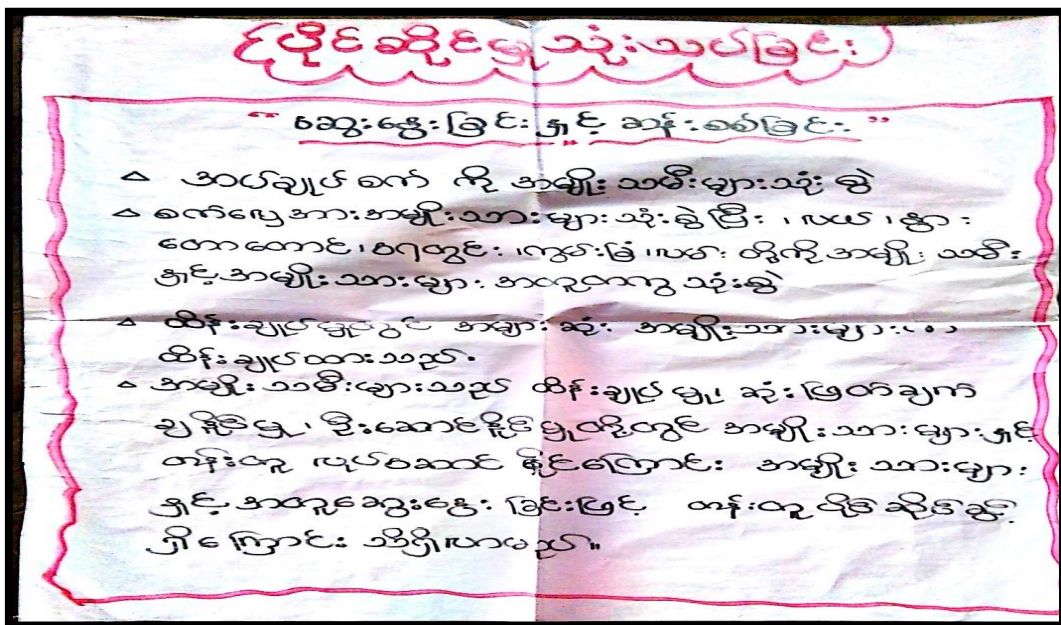 ပိုင်ဆိုင်မှုသုံးသပ်ခြင်း
“ ဆွေးနွေးခြင်းနှင့် ဆန်းစစ်ခြင်း ”
△ အပ်ချုပ်စက် ကို အမျိုးသမီးများသုံးစွဲ
△ စက်လှေအားအမျိုးသားများသုံးစွဲပြီး ၊လယ်၊နွား
တောတောင်၊ရေတွင်း၊ကွမ်းခြံ၊လမ်း တို့ကို အမျိုးသမီး
နှင့်အမျိုးသားများ အတူတကွသုံးစွဲ
△ ထိန်းချုပ်မှုတွင် အများဆုံး အမျိုးသားများ
ထိန်းချုပ်ထားသည်.
△ အမျိုးသမီးများသည် ထိန်းချုပ်မှု၊ ဆုံးဖြတ်ချက်
ချနိုင်မှု၊ ဦးဆောင်နိုင်မှုတို့တွင် အမျိုးသားများနှင့်
တန်းတူ လုပ်ဆောင် နိုင်ကြောင်း အမျိုးသားများ
နှင့်အတူဆွေးနွေးခြင်းဖြင့် တန်းတူပိုင်ဆိုင်ခွင့်
ရှိကြောင်း သိရှိလာမည်။